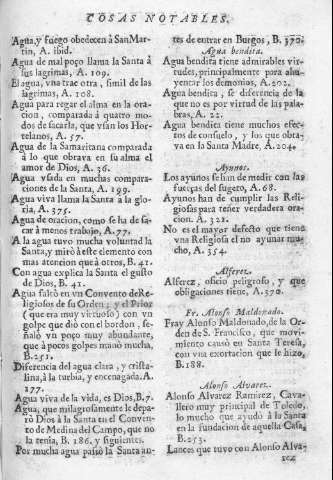 COSAS NOTABLES.
Agua, y fuego obedecen à San Mar-
tin, A. ibid.
Agua de mal poço llama la Santa à
sus lagrimas, A. 109.
El agua, vna trae otra, simil de las
lagrimas, A. 108.
Agua para regar el alma en la ora-
cion, comparada à quatro mo-
dos de sacarla, que vsan los Hor-
telanos, A. 57.
Agua de la Samaritana comparada
à lo que obrava en su alma el
amor de Dios, A. 36.
Agua vsada en muchas compara-
ciones de la Santa, A. 199.
Agua viva llama la Santa à la glo-
ria, A. 375.
Agua de oracion, como se ha de sa-
car à menos trabajo, A. 77.
A la agua tuvo mucha voluntad la
Santa, y mirò à este elemento con
mas atencion que à otros, B. 41.
Con agua explica la Santa el gusto
de Dios, B. 41.
Agua faltò en vn Convento de Re-
ligiosos de su Orden; y el Prior
(que era muy virtuoso) con vn
golpe que diò con el bordon, se-
ñalò vn poço muy abundante,
que à pocos golpes manò mucha,
B. 251.
Diferencia del agua clara, y crista-
lina, à la turbia, y encenagada. A.
177.
Agua viva de la vida, es Dios, B. 7.
Agua, que milagrosamente le depa-
rò Dios à la Santa en el Convento
de Medina del Campo, que no
la tenia, B. 186. y siguientes.
Por mucha agua passò la Santa an-
tes de entrar en Burgos, B. 370.
Agua bendita.
Agua bendita tiene admirables vir-
tudes, principalmente para ahu-
yentar los demonios, A. 202.
Agua bendita, se diferencia de la
que no es por virtud de las pala-
bras, A. 22.
Agua bendita tiene muchos efec-
tos de consuelo, y los que obra-
va en la Santa Madre, A. 204.
Ayunos.
Los ayunos se han de medir con las
fuerças del sugeto, A. 68.
Ayunos han de cumplir las Reli-
giosas para tener verdadera ora-
cion. A. 322.
No es el mayor defecto que tiene
vna Religiosa el no ayunar mu-
cho, A. 354.
Alferez.
Alferez, oficio peligroso, y que
obligaciones tiene, A. 370.
Fr. Alonso Maldonado.
Fray Alonso Maldonado, de la Or-
den de S. Francisco, que movi-
miento causò en Santa Teresa,
con vna exortacion que le hizo,
B. 188.
Alonso Alvarez.
Alonso Alvarez Ramirez, Cava-
llero muy principal de Toledo,
lo mucho que ayudò à la Santa
en la fundacion de aquella Casa,
B. 273.
Lances que tuvo con Alonso Alva-
rez